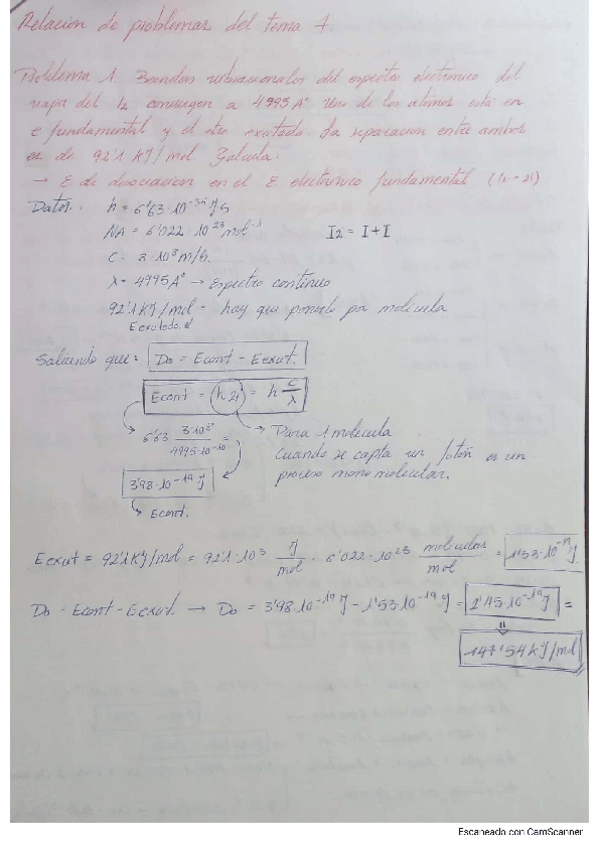 Relación de problemas del tema 7.
Problema 1 Bandas vibracionales del espectro electrónico del
vapor del I2 convergen a 4995 Aº Uno de los átomos está en
e fundamental y el otro excitado. La separación entre ambos
es de 92'1 kJ/mol Calcula:
→ E de disociación en el E electrónico fundamental (I2 = 2I)
Datos: h = 6'63·10-34 J s
NA = 6'022 · 10 23 mol-1
I2 = I + I
C = 3·10 8 m/s.
λ = 4995 Aº → Espectro continuo
92'1 kJ/mol → hay que ponerlo por molécula
Eexcitado
Sabiendo que: Do = Econt - Eexcit.
Econt = h = h c/λ
6'63 3·10 8 / 4995·10-10 =
→ Para 1 molécula
Cuando se capta un fotón es un
proceso monomolecular.
3'98·10-19 J
→ Econt.
Eexcit = 92'1 kJ/mol = 92'1·10 3 J/mol · 6'022·10 23 moléculas/mol = 1'53·10-19 J.
Do = Econt - Eexcit. → Do = 3'98·10-19 J - 1'53·10-19 J = 2'45·10-19 J =
147'54 kJ/mol
Escaneado con CamScanner